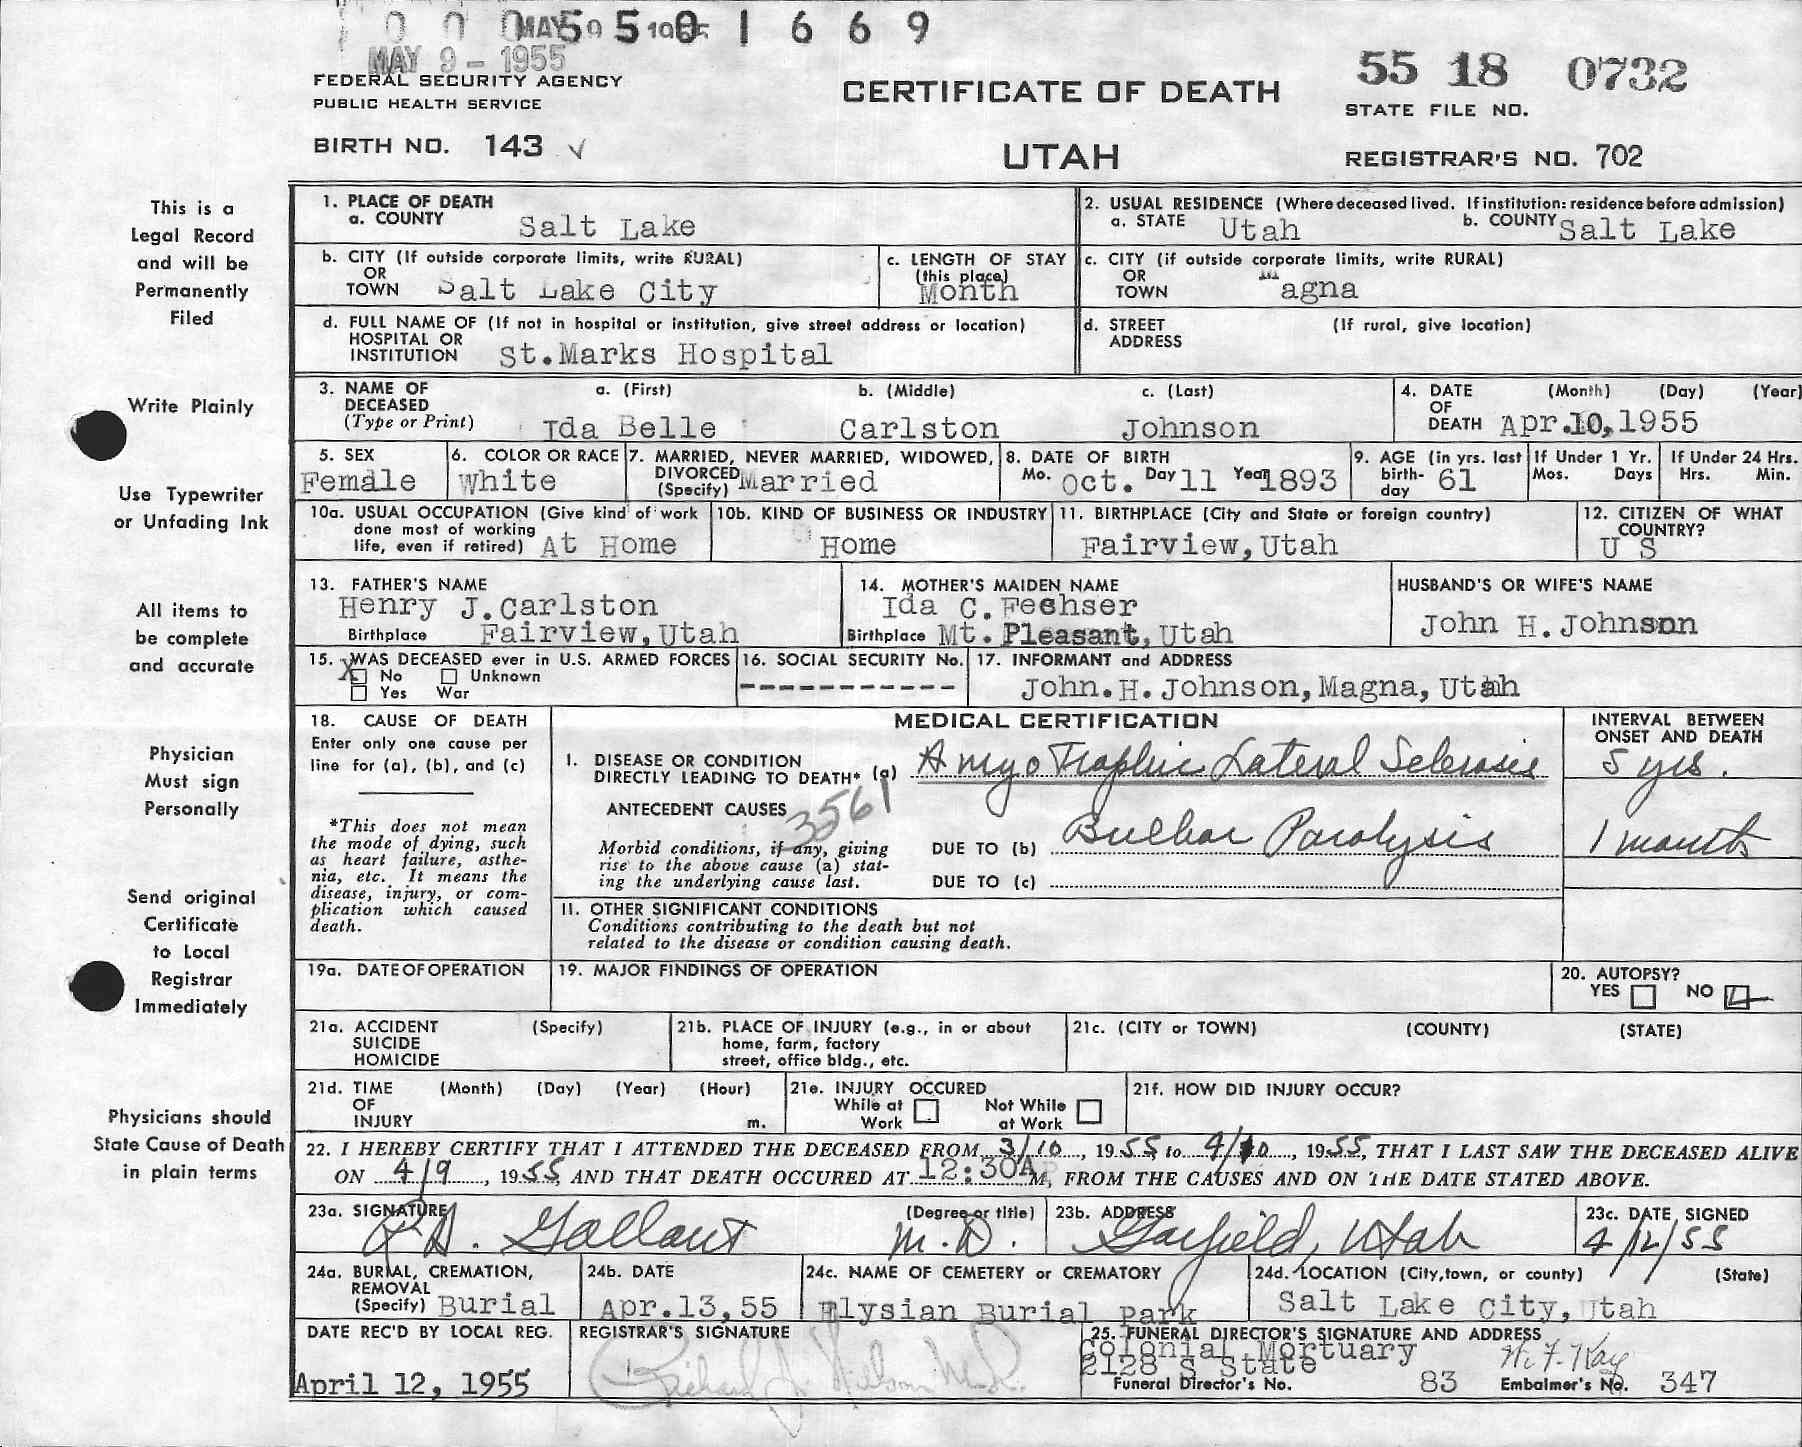 0 0 0 MAY 5 9 5 1955 0 1 6 6 9
MAY 9 - 1955
FEDERAL SECURITY AGENCY
PUBLIC HEALTH SERVICE
BIRTH NO. 143 ✓
CERTIFICATE OF DEATH
UTAH
55 18 0732
STATE FILE NO.
REGISTRAR'S NO. 702
This is a
Legal Record
and will be
Permanently
Filed
Write Plainly
Use Typewriter
or Unfading Ink
All items to
be complete
and accurate
Physician
Must sign
Personally
Send original
Certificate
to Local
Registrar
Immediately
Physicians should
State Cause of Death
in plain terms
1. PLACE OF DEATH
a. COUNTY Salt Lake
2. USUAL RESIDENCE (Where deceased lived. If institution: residence before admission)
a. STATE Utah b. COUNTY Salt Lake
b. CITY (If outside corporate limits, write RURAL)
OR
TOWN Salt Lake City
c. LENGTH OF STAY
(this place)
Month
c. CITY (if outside corporate limits, write RURAL)
OR
TOWN Magna
d. FULL NAME OF (If not in hospital or institution, give street address or location)
HOSPITAL OR
INSTITUTION St.Marks Hospital
d. STREET (If rural, give location)
ADDRESS
3. NAME OF a. (First) b. (Middle) c. (Last)
DECEASED
(Type or Print) Ida Belle Carlston Johnson
4. DATE (Month) (Day) (Year)
OF
DEATH Apr.10,1955
5. SEX
Female
6. COLOR OR RACE
White
7. MARRIED, NEVER MARRIED, WIDOWED,
DIVORCED
(Specify) Married
8. DATE OF BIRTH
Mo. Oct. Day 11 Year 1893
9. AGE (in yrs. last
birth-
day 61
If Under 1 Yr.
Mos. Days
If Under 24 Hrs.
Hrs. Min.
10a. USUAL OCCUPATION (Give kind of work
done most of working
life, even if retired) At Home
10b. KIND OF BUSINESS OR INDUSTRY
Home
11. BIRTHPLACE (City and State or foreign country)
Fairview,Utah
12. CITIZEN OF WHAT
COUNTRY?
U S
13. FATHER'S NAME
Henry J.Carlston
Birthplace Fairview,Utah
14. MOTHER'S MAIDEN NAME
Ida C.Fechser
Birthplace Mt.Pleasant,Utah
HUSBAND'S OR WIFE'S NAME
John H.Johnson
15. WAS DECEASED ever in U.S. ARMED FORCES
X No Unknown
Yes War
16. SOCIAL SECURITY No.
------------
17. INFORMANT and ADDRESS
John.H.Johnson,Magna,Utah
18. CAUSE OF DEATH
Enter only one cause per
line for (a), (b), and (c)
*This does not mean
the mode of dying, such
as heart failure, asthe-
nia, etc. It means the
disease, injury, or com-
plication which caused
death.
MEDICAL CERTIFICATION
INTERVAL BETWEEN
ONSET AND DEATH
I. DISEASE OR CONDITION
DIRECTLY LEADING TO DEATH* (a) Amyo Trophic Lateral Sclerosis 5 yrs.
ANTECEDENT CAUSES 3561
Morbid conditions, if any, giving
rise to the above cause (a) stat-
ing the underlying cause last.
DUE TO (b) Bulbar Paralysis 1 month
DUE TO (c)
II. OTHER SIGNIFICANT CONDITIONS
Conditions contributing to the death but not
related to the disease or condition causing death.
19a. DATE OF OPERATION
19. MAJOR FINDINGS OF OPERATION
20. AUTOPSY?
YES NO
21a. ACCIDENT (Specify)
SUICIDE
HOMICIDE
21b. PLACE OF INJURY (e.g., in or about
home, farm, factory
street, office bldg., etc.
21c. (CITY or TOWN) (COUNTY) (STATE)
21d. TIME (Month) (Day) (Year) (Hour)
OF
INJURY m.
21e. INJURY OCCURED
While at Not While
Work at Work
21f. HOW DID INJURY OCCUR?
22. I HEREBY CERTIFY THAT I ATTENDED THE DECEASED FROM 3/10, 1955 to 4/10, 1955, THAT I LAST SAW THE DECEASED ALIVE
ON 4/9, 1955, AND THAT DEATH OCCURED AT 12:30A M, FROM THE CAUSES AND ON THE DATE STATED ABOVE.
23a. SIGNATURE (Degree or title)
Gallant M.D.
23b. ADDRESS
Garfield, Utah
23c. DATE SIGNED
4/12/55
24a. BURIAL, CREMATION,
REMOVAL
(Specify) Burial
24b. DATE
Apr.13,55
24c. NAME OF CEMETERY or CREMATORY
Elysian Burial Park
24d. LOCATION (City, town, or county) (State)
Salt Lake City,Utah
DATE REC'D BY LOCAL REG.
April 12, 1955
REGISTRAR'S SIGNATURE
Richard
25. FUNERAL DIRECTOR'S SIGNATURE AND ADDRESS
Colonial Mortuary
2128 S State
Funeral Director's No. 83 Embalmer's No. 347